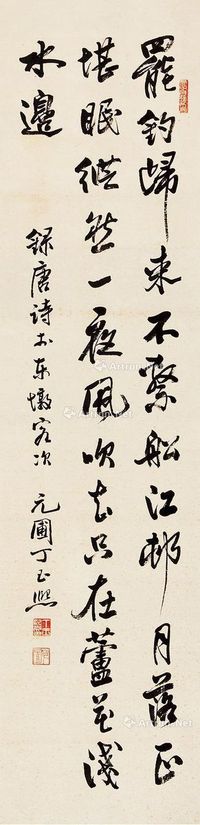 罷釣歸來不繫船江邨月落正
堪眠縱然一夜風吹去只在蘆花淺
水邊
錄唐詩於東墩客次 元圃丁玉熙